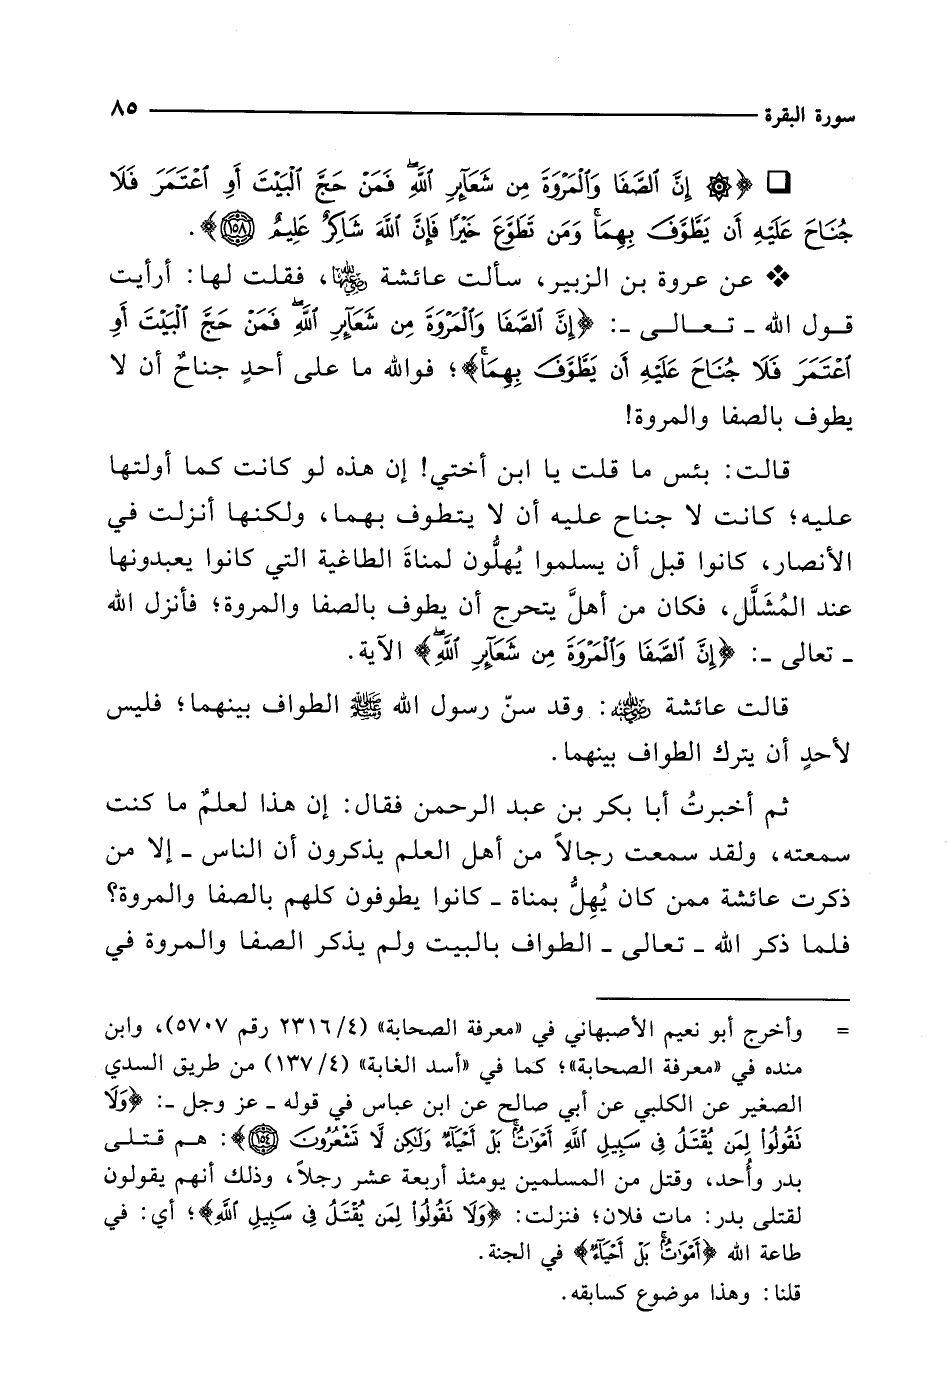 سورة البقرة ٨٥
❑ ﴿۞ إِنَّ ٱلصَّفَا وَٱلْمَرْوَةَ مِن شَعَآئِرِ ٱللَّهِۖ فَمَنْ حَجَّ ٱلْبَيْتَ أَوِ ٱعْتَمَرَ فَلَا
جُنَاحَ عَلَيْهِ أَن يَطَّوَّفَ بِهِمَاۚ وَمَن تَطَوَّعَ خَيْرًا فَإِنَّ ٱللَّهَ شَاكِرٌ عَلِيمٌ ١٥٨﴾.
❖ عن عروة بن الزبير، سألت عائشة رضي الله عنها، فقلت لها: أرأيت
قول الله ـ تعالى ـ: ﴿إِنَّ ٱلصَّفَا وَٱلْمَرْوَةَ مِن شَعَآئِرِ ٱللَّهِۖ فَمَنْ حَجَّ ٱلْبَيْتَ أَوِ
ٱعْتَمَرَ فَلَا جُنَاحَ عَلَيْهِ أَن يَطَّوَّفَ بِهِمَاۚ﴾؛ فوالله ما على أحدٍ جناحٌ أن لا
يطوف بالصفا والمروة!
قالت: بئس ما قلت يا ابن أختي! إن هذه لو كانت كما أولتها
عليه؛ كانت لا جناح عليه أن لا يتطوف بهما، ولكنها أنزلت في
الأنصار، كانوا قبل أن يسلموا يُهلُّون لمناةَ الطاغية التي كانوا يعبدونها
عند المُشَلَّل، فكان من أهلَّ يتحرج أن يطوف بالصفا والمروة؛ فأنزل الله
ـ تعالى ـ: ﴿إِنَّ ٱلصَّفَا وَٱلْمَرْوَةَ مِن شَعَآئِرِ ٱللَّهِۖ﴾ الآية.
قالت عائشة رضي الله عنها: وقد سنّ رسول الله ﷺ الطواف بينهما؛ فليس
لأحدٍ أن يترك الطواف بينهما.
ثم أخبرتُ أبا بكر بن عبد الرحمن فقال: إن هذا لعلمٌ ما كنت
سمعته، ولقد سمعت رجالاً من أهل العلم يذكرون أن الناس ـ إلا من
ذكرت عائشة ممن كان يُهِلُّ بمناة ـ كانوا يطوفون كلهم بالصفا والمروة؟
فلما ذكر الله ـ تعالى ـ الطواف بالبيت ولم يذكر الصفا والمروة في
= وأخرج أبو نعيم الأصبهاني في «معرفة الصحابة» (٤/ ٢٣١٦ رقم ٥٧٠٧)، وابن
منده في «معرفة الصحابة»؛ كما في «أسد الغابة» (٤/ ١٣٧) من طريق السدي
الصغير عن الكلبي عن أبي صالح عن ابن عباس في قوله ـ عز وجل ـ: ﴿وَلَا
تَقُولُوا۟ لِمَن يُقْتَلُ فِى سَبِيلِ ٱللَّهِ أَمْوَٰتٌۢۚ بَلْ أَحْيَآءٌ وَلَٰكِن لَّا تَشْعُرُونَ ١٥٤﴾: هم قتلى
بدر وأُحد، وقتل من المسلمين يومئذ أربعة عشر رجلاً، وذلك أنهم يقولون
لقتلى بدر: مات فلان؛ فنزلت: ﴿وَلَا تَقُولُوا۟ لِمَن يُقْتَلُ فِى سَبِيلِ ٱللَّهِ﴾؛ أي: في
طاعة الله ﴿أَمْوَٰتٌۢۚ بَلْ أَحْيَآءٌ﴾ في الجنة.
قلنا: وهذا موضوع كسابقه.